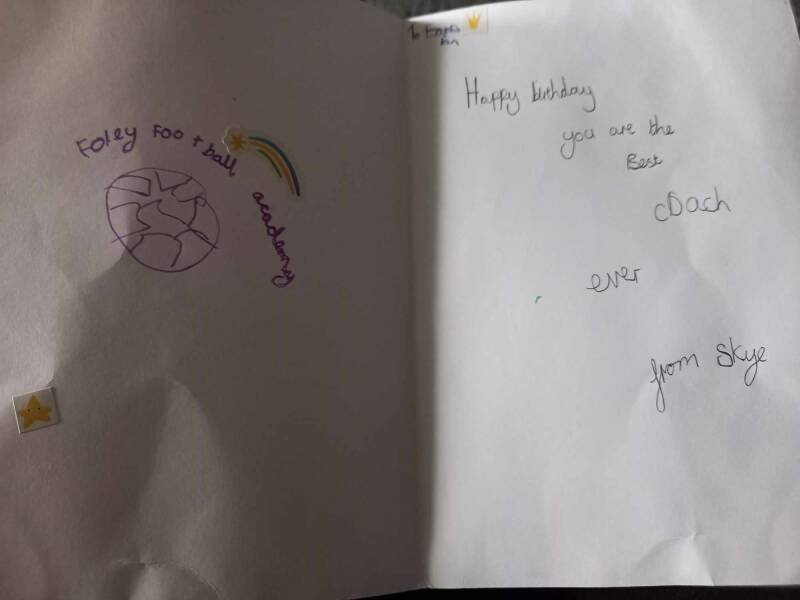 Foley Foo t ball academy
To
Happy birthday
you are the
Best
coach
ever
from Skye